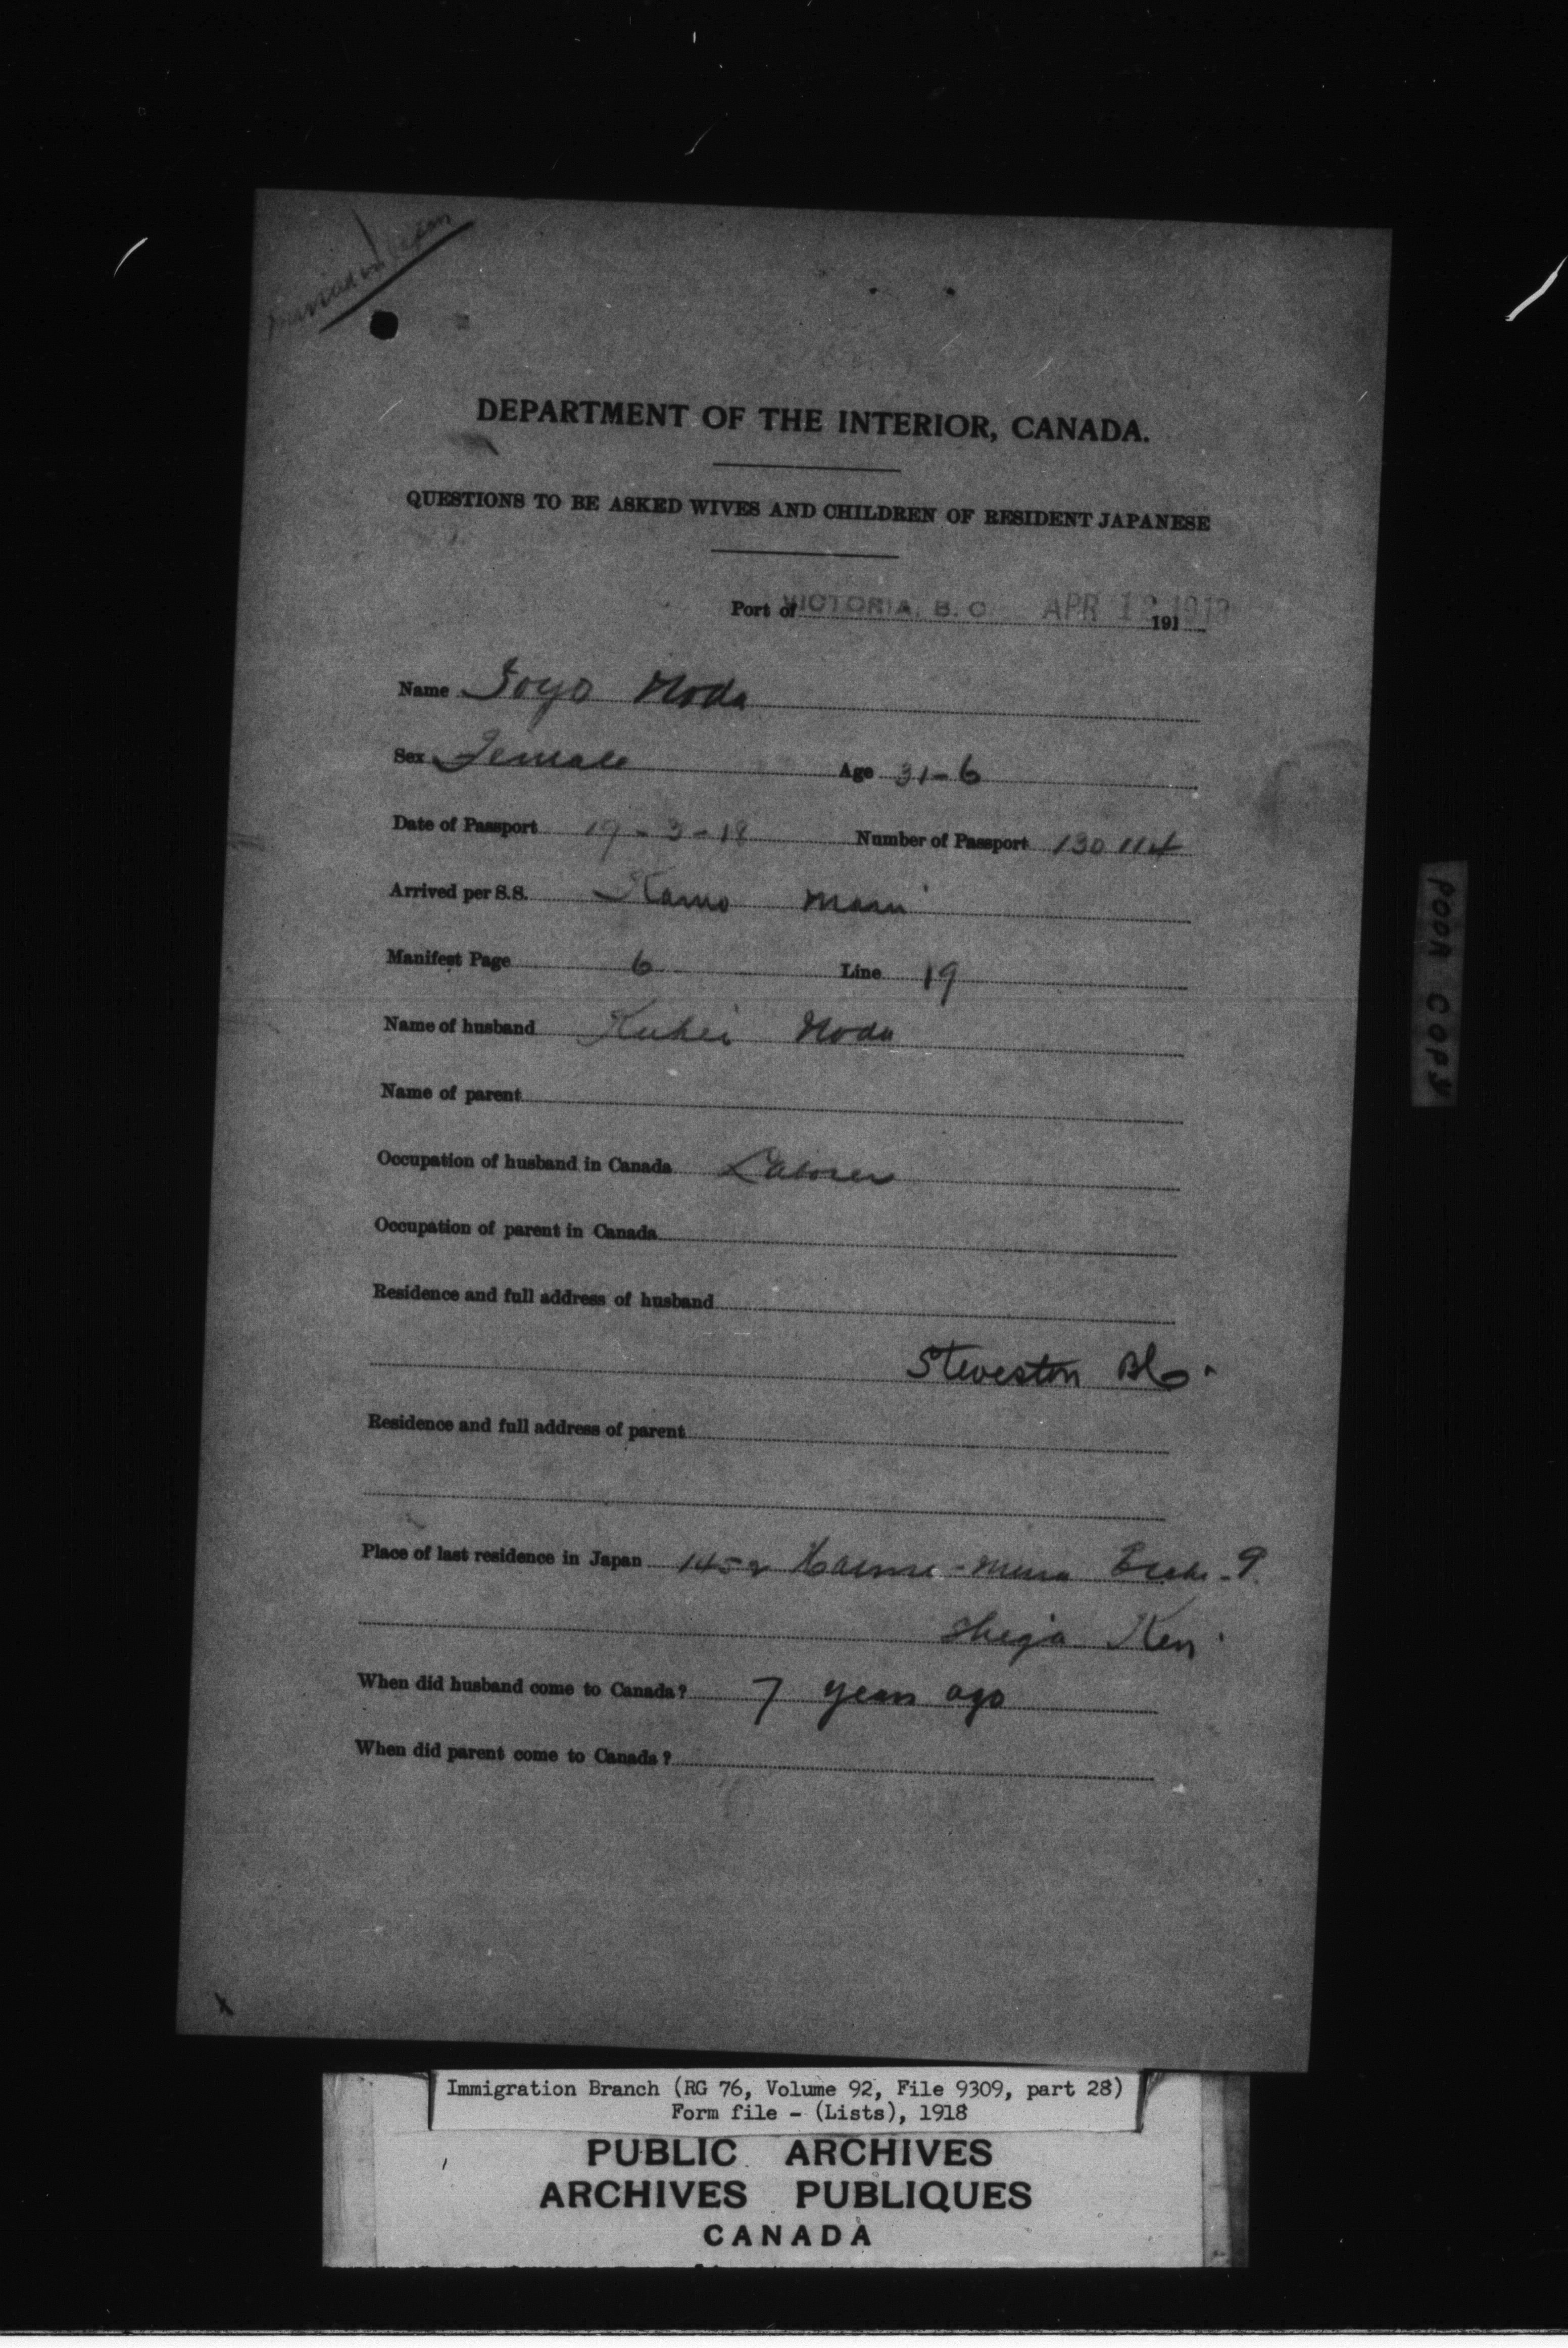 married in Japan
DEPARTMENT OF THE INTERIOR, CANADA.
QUESTIONS TO BE ASKED WIVES AND CHILDREN OF RESIDENT JAPANESE
Port of VICTORIA, B. C. APR 12 1918 191
Name Toyo Noda
Sex Female Age 31-6
Date of Passport 19-3-18 Number of Passport 130114
Arrived per S.S. Kamo Maru
Manifest Page 6 Line 19
Name of husband Kuhei Noda
Name of parent
Occupation of husband in Canada Laborer
Occupation of parent in Canada
Residence and full address of husband
Steveston BC.
Residence and full address of parent
Place of last residence in Japan 1452 -mura
Shiga Ken
When did husband come to Canada? 7 years ago
When did parent come to Canada?
x
POOR COPY
Immigration Branch (RG 76, Volume 92, File 9309, part 28)
Form file - (Lists), 1918
PUBLIC ARCHIVES
ARCHIVES PUBLIQUES
CANADA